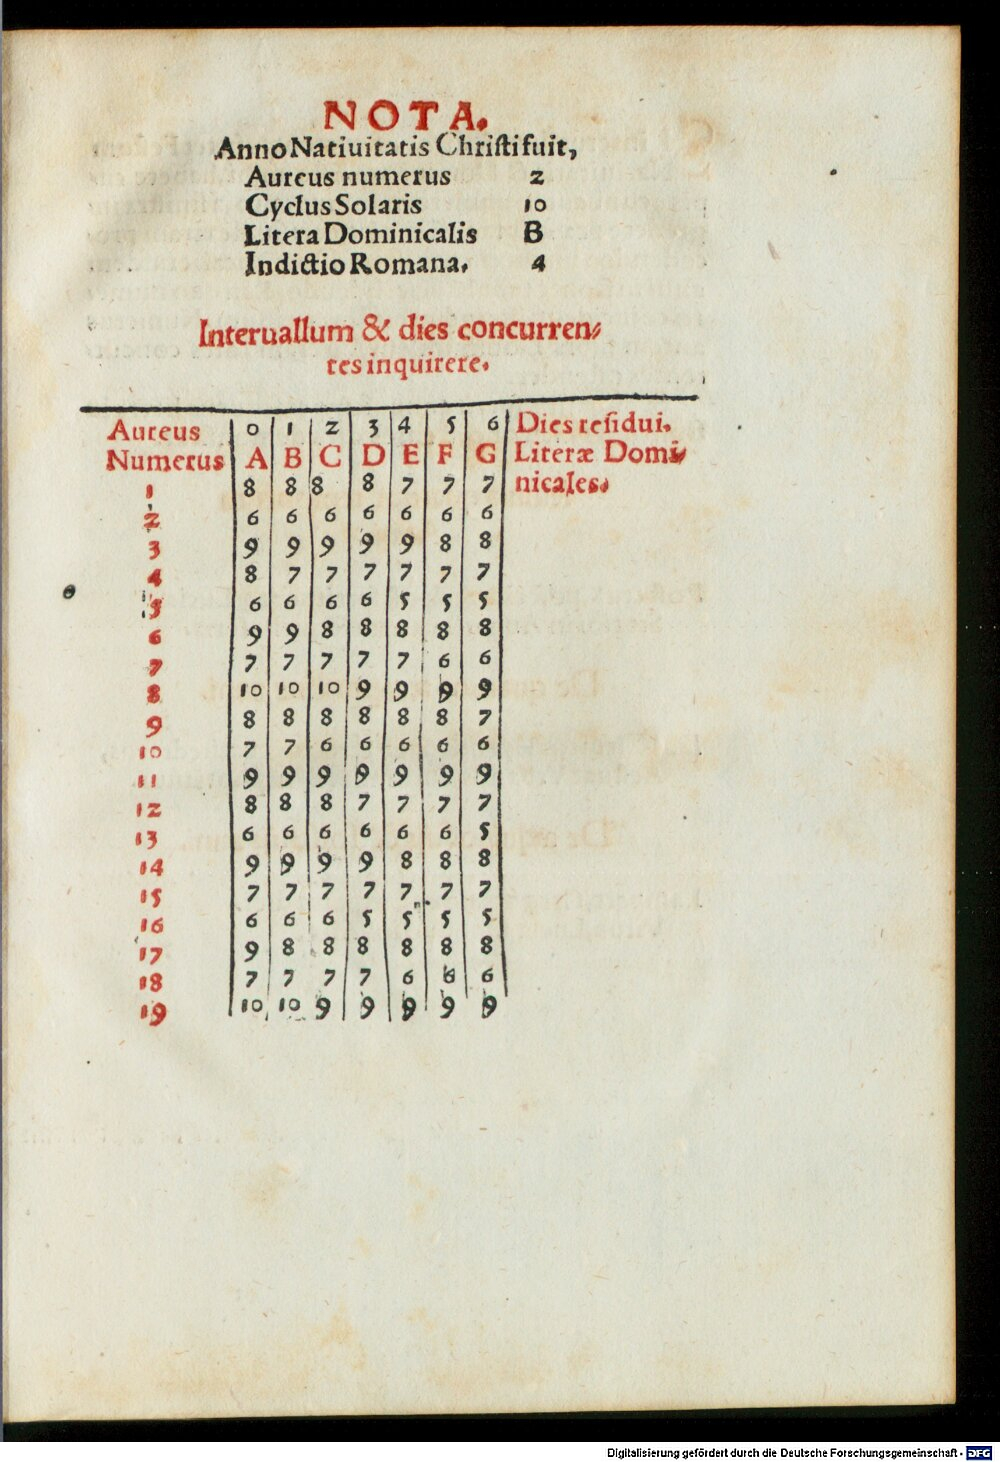 NOTA.
Anno Natiuitatis Christi fuit,
Aureus numerus 2
Cyclus Solaris 10
Litera Dominicalis B
Indictio Romana. 4
Interuallum & dies concurren⸗
tes inquirere.
Aureus 0 1 2 3 4 5 6 Dies residui.
Numerus A B C D E F G Literæ Domi⸗
1 8 8 8 8 7 7 7 nicales.
2 6 6 6 6 6 6 6
3 9 9 9 9 9 8 8
4 8 7 7 7 7 7 7
5 6 6 6 6 5 5 5
6 9 9 8 8 8 8 8
7 7 7 7 7 7 6 6
8 10 10 10 9 9 9 9
9 8 8 8 8 8 8 7
10 7 7 6 6 6 6 6
11 9 9 9 9 9 9 9
12 8 8 8 7 7 7 7
13 6 6 6 6 6 6 5
14 9 9 9 9 8 8 8
15 7 7 7 7 7 7 7
16 6 6 6 5 5 5 5
17 9 8 8 8 8 8 8
18 7 7 7 7 6 6 6
19 10 10 9 9 9 9 9
Digitalisierung gefördert durch die Deutsche Forschungsgemeinschaft - DFG